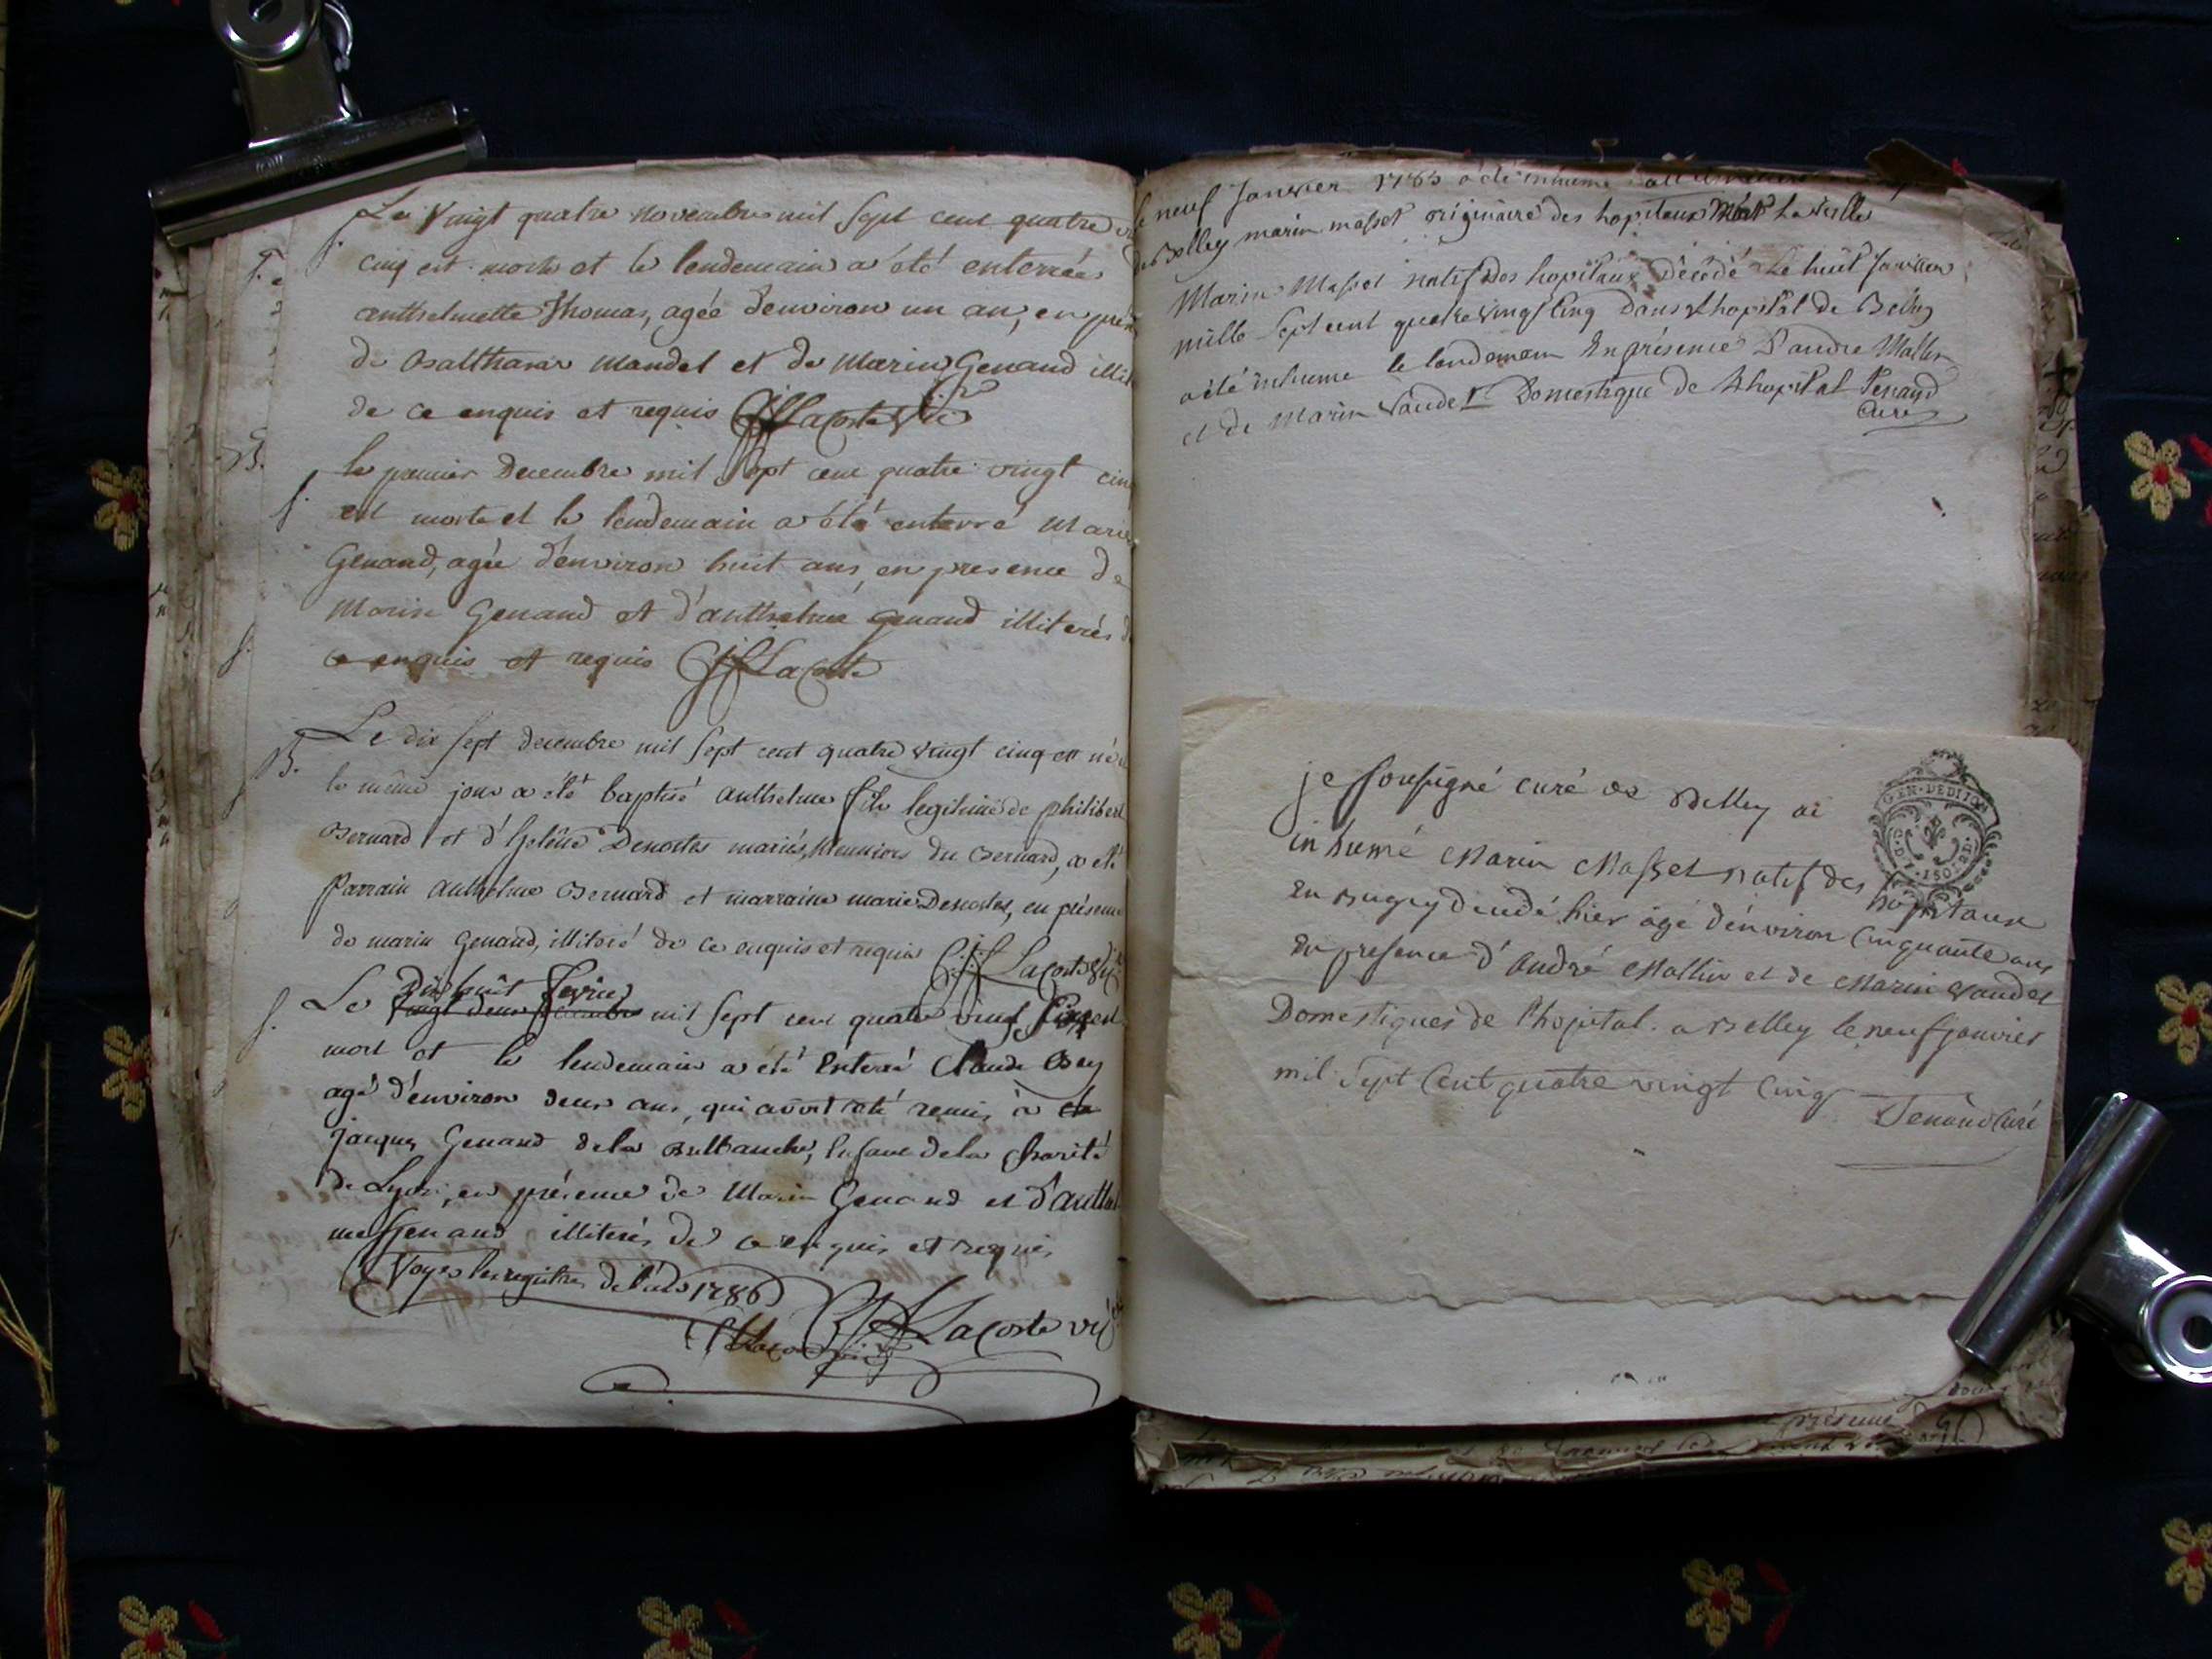 Le vingt quatre novembre mil sept cent quatre
cinq est morte et le lendemain a été enterrée
anthelmette Thomas, agée d'environ un an, en
de Balthazar Mandel et de Marin Genand
de ce enquis et requis Lacoste vic
S.
le premier Decembre mil sept cent quatre vingt
est morte et le lendemain a été enterré Marie
Genand, agée d'environ huit ans, en presence de
Marin Genand et d'anthelme Genand illiterés
ce enquis et requis Lacoste
B.
Le dix sept decembre mil sept cent quatre vingt cinq est né
le même jour a été baptisé anthelme fils legitime de philibert
Bernard et d' Desnostes mariés, meuniers du Bernard, a été
Parrain anthelme Bernard et marraine marie Desnostes, en présence
de marin Genand, illiteré de ce enquis et requis Lacoste vic
S.
Dix huit fevrier
Le vingt deux mil sept cent quatre vingt
mort et le lendemain a été enterré Claude Bey
agé d'environ deux ans, qui avoit été remis à
jacques Genand dela enfant dela charité
de Lyon, en présence de Marin Genand et
me Genand illiterés de ce enquis et requis
Voyes les registres de 1786
Lacoste vic
le neuf Janvier 1785 a été inhumé
de Belley marin masset originaire des hopitaux la veille
Marin Masset natif des hopitaux décédé le huit Janvier
mille sept cent quatre vingt cinq dans l'hopital de Belley
a été inhumé le lendemain En présence D'andre Mallin
et de Marin vaudet Domestique de L'hopital Tenand
curé
je soussigné curé de Belley ai
GEN·DE DIJON
inhumé Marin Masset natif des hopitaux
en Bugey décédé hier âgé d'environ cinquante ans
en presence d'André Mallin et de Marin vaudet
Domestiques de l'hopital. a Belley le neuf janvier
mil sept cent quatre vingt cinq
Tenand curé